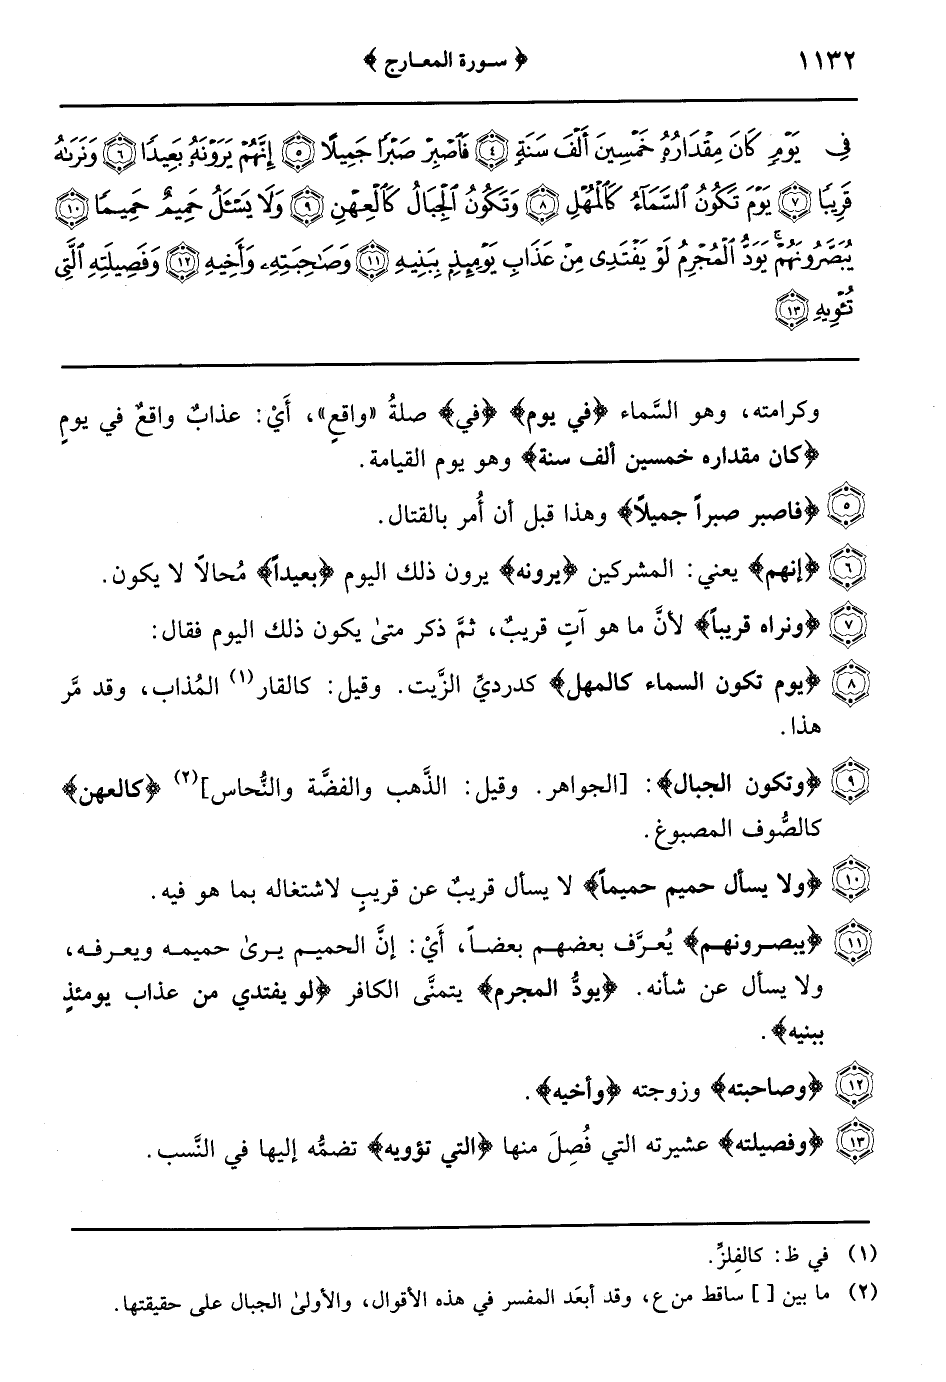 ١١٣٢ ﴿ سورة المعارج ﴾
فِي يَوْمٍ كَانَ مِقْدَارُهُۥ خَمْسِينَ أَلْفَ سَنَةٍ ﴿٤﴾ فَٱصْبِرْ صَبْرًا جَمِيلًا ﴿٥﴾ إِنَّهُمْ يَرَوْنَهُۥ بَعِيدًا ﴿٦﴾ وَنَرَىٰهُ
قَرِيبًا ﴿٧﴾ يَوْمَ تَكُونُ ٱلسَّمَآءُ كَٱلْمُهْلِ ﴿٨﴾ وَتَكُونُ ٱلْجِبَالُ كَٱلْعِهْنِ ﴿٩﴾ وَلَا يَسْـَٔلُ حَمِيمٌ حَمِيمًا ﴿١٠﴾
يُبَصَّرُونَهُمْ ۚ يَوَدُّ ٱلْمُجْرِمُ لَوْ يَفْتَدِى مِنْ عَذَابِ يَوْمِئِذٍۭ بِبَنِيهِ ﴿١١﴾ وَصَـٰحِبَتِهِۦ وَأَخِيهِ ﴿١٢﴾ وَفَصِيلَتِهِ ٱلَّتِى
تُـْٔوِيهِ ﴿١٣﴾
وكرامته، وهو السَّماء ﴿في يوم﴾ ﴿في﴾ صلةُ «واقعٍ»، أَيْ: عذابٌ واقعٌ في يومٍ
﴿كان مقداره خمسين ألف سنة﴾ وهو يوم القيامة.
﴿٥﴾ ﴿فاصبر صبراً جميلاً﴾ وهذا قبل أن أُمر بالقتال.
﴿٦﴾ ﴿إنهم﴾ يعني: المشركين ﴿يرونه﴾ يرون ذلك اليوم ﴿بعيداً﴾ مُحالاً لا يكون.
﴿٧﴾ ﴿ونراه قريباً﴾ لأنَّ ما هو آتٍ قريبٌ، ثمَّ ذكر متىٰ يكون ذلك اليوم فقال:
﴿٨﴾ ﴿يوم تكون السماء كالمهل﴾ كدرديِّ الزَّيت. وقيل: كالقار(١) المُذاب، وقد مَّر
هذا.
﴿٩﴾ ﴿وتكون الجبال﴾: [الجواهر. وقيل: الذَّهب والفضَّة والنُّحاس](٢) ﴿كالعهن﴾
كالصُّوف المصبوغ.
﴿١٠﴾ ﴿ولا يسأل حميم حميماً﴾ لا يسأل قريبٌ عن قريبٍ لاشتغاله بما هو فيه.
﴿١١﴾ ﴿يبصرونهم﴾ يُعرَّف بعضهم بعضاً، أَيْ: إنَّ الحميم يرىٰ حميمه ويعرفه،
ولا يسأل عن شأنه. ﴿يودُّ المجرم﴾ يتمنَّى الكافر ﴿لو يفتدي من عذاب يومئذٍ
ببنيه﴾.
﴿١٢﴾ ﴿وصاحبته﴾ وزوجته ﴿وأخيه﴾.
﴿١٣﴾ ﴿وفصيلته﴾ عشيرته التي فُصِلَ منها ﴿التي تؤويه﴾ تضمُّه إليها في النَّسب.
(١) في ظ: كالفِلزِّ.
(٢) ما بين [ ] ساقط من ع، وقد أبعَد المفسر في هذه الأقوال، والأولىٰ الجبال على حقيقتها.